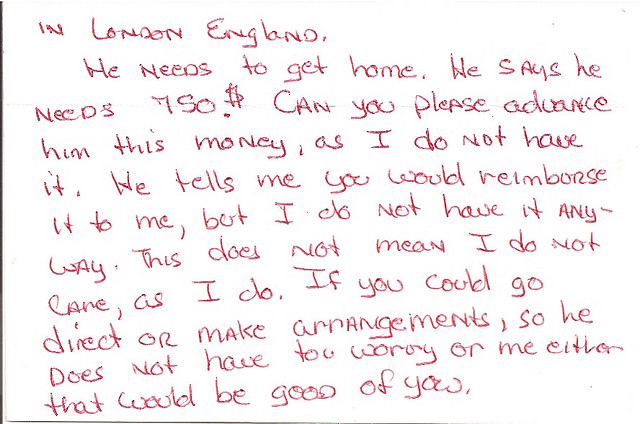 IN LONDON ENglAND.
He NEEDS to get home. He SAYS he
NEEDS 750.$ CAN you please advance
him this money, as I do not have
it. He tells me you would reimborse
it to me, but I do not have it ANY-
WAY. This does not mean I do not
CARE, as I do. If you could go
direct OR MAKE arrangements, so he
DOES NOT have too worry or me either
that would be good of you.